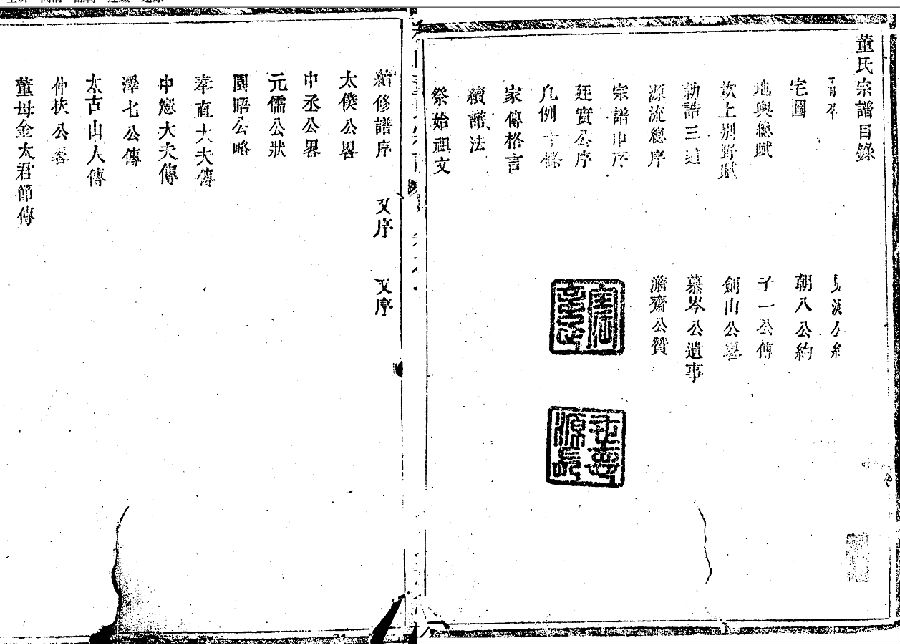 董氏宗譜目錄
宅圖
地輿總賦
汶上別野賦
勅誥三道
源流總序
宗譜中序
廷實公序
凡例十條
家傳格言
續譜法
祭始祖文
朝八公約
子一公傳
劍山公畧
慕岑公遺事
澹齋公贊
源長
續修譜序 又序 又序
太僕公畧
中丞公畧
元儒公狀
園昭公略
奉直大夫傳
中憲大夫傳
澤七公傳
太古山人傳
仲扶公畧
董母金太君節傳